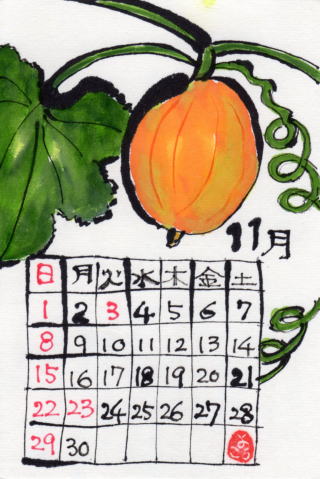 11月
日 月 火 水 木 金 土
1 2 3 4 5 6 7
8 9 10 11 12 13 14
15 16 17 18 19 20 21
22 23 24 25 26 27 28
29 30